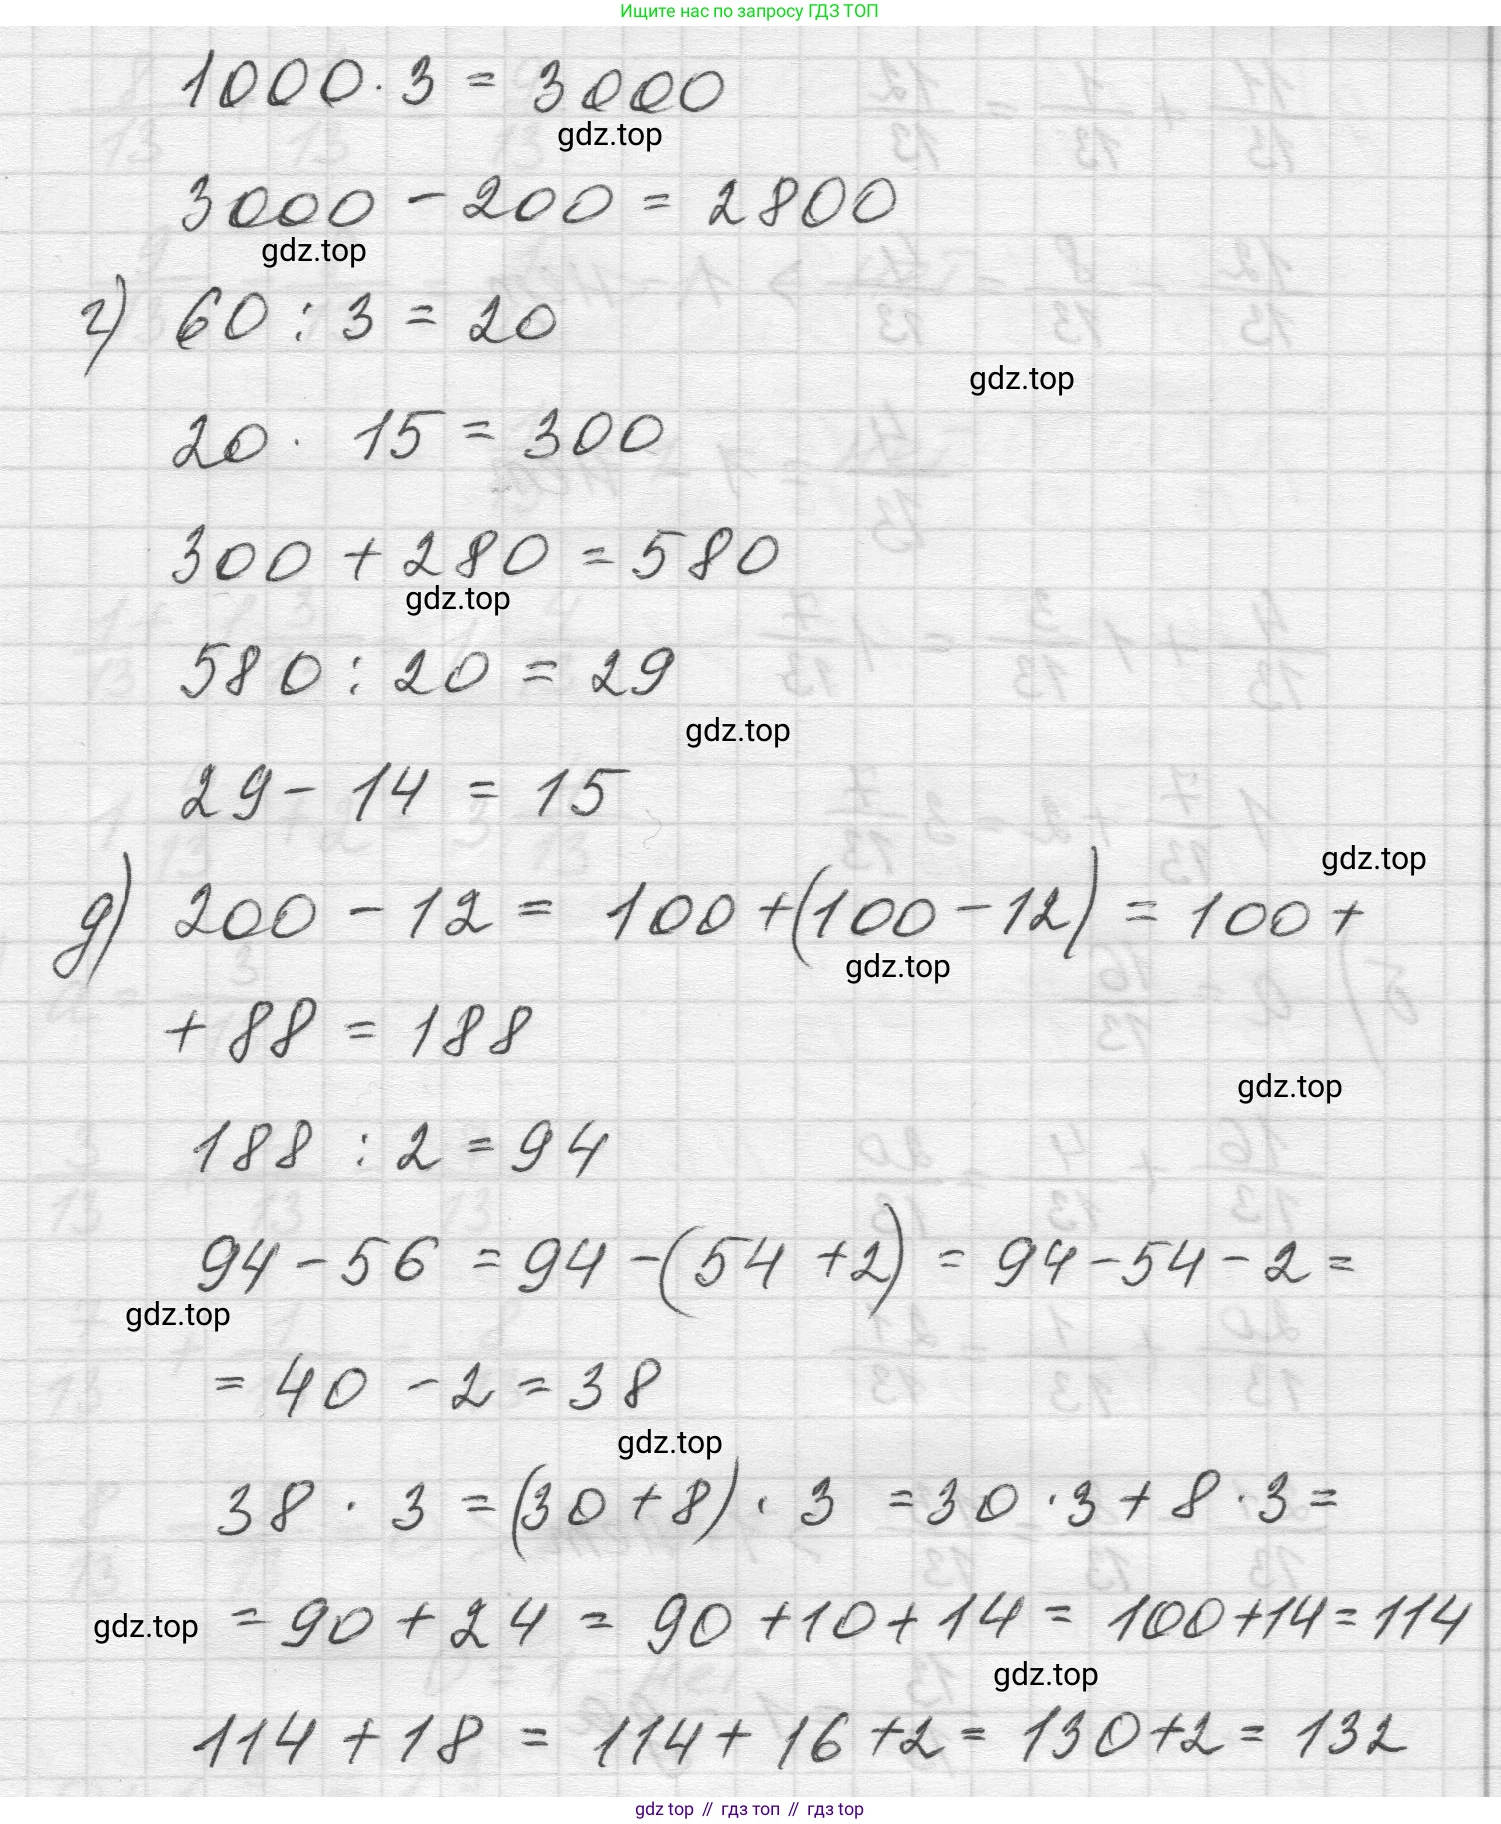 Ищите нас по запросу ГДЗ ТОП
1000 · 3 = 3000
gdz.top
3000 - 200 = 2800
gdz.top
г) 60 : 3 = 20
gdz.top
20 · 15 = 300
300 + 280 = 580
gdz.top
580 : 20 = 29
gdz.top
29 - 14 = 15
gdz.top
д) 200 - 12 = 100 + (100 - 12) = 100 +
gdz.top
+ 88 = 188
gdz.top
188 : 2 = 94
94 - 56 = 94 - (54 + 2) = 94 - 54 - 2 =
gdz.top
= 40 - 2 = 38
gdz.top
38 · 3 = (30 + 8) · 3 = 30 · 3 + 8 · 3 =
gdz.top = 90 + 24 = 90 + 10 + 14 = 100 + 14 = 114
gdz.top
114 + 18 = 114 + 16 + 2 = 130 + 2 = 132
gdz top // гдз топ // гдз top